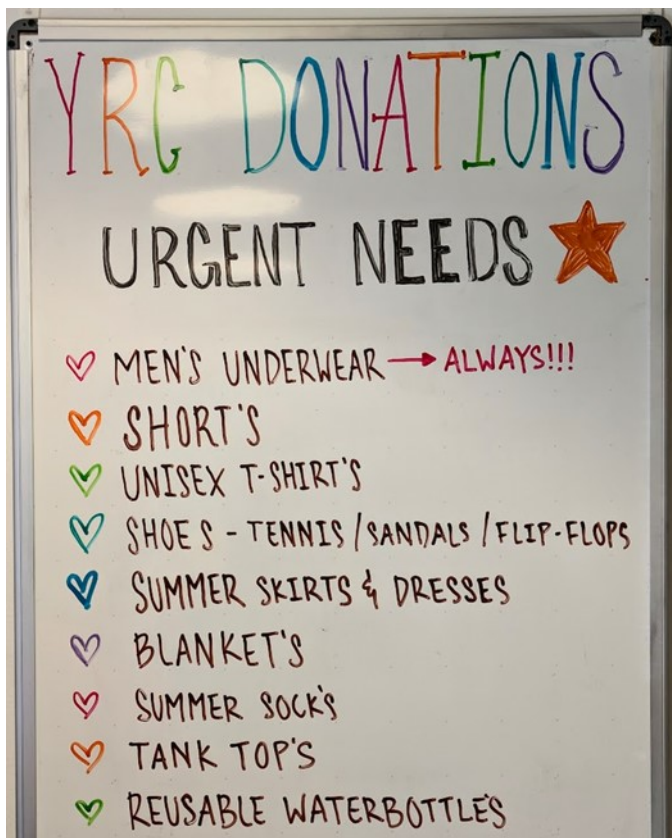 YRC DONATIONS
URGENT NEEDS
MEN'S UNDERWEAR → ALWAYS!!!
SHORT'S
UNISEX T-SHIRT'S
SHOES - TENNIS / SANDALS / FLIP-FLOPS
SUMMER SKIRTS & DRESSES
BLANKET'S
SUMMER SOCK'S
TANK TOP'S
REUSABLE WATERBOTTLE'S